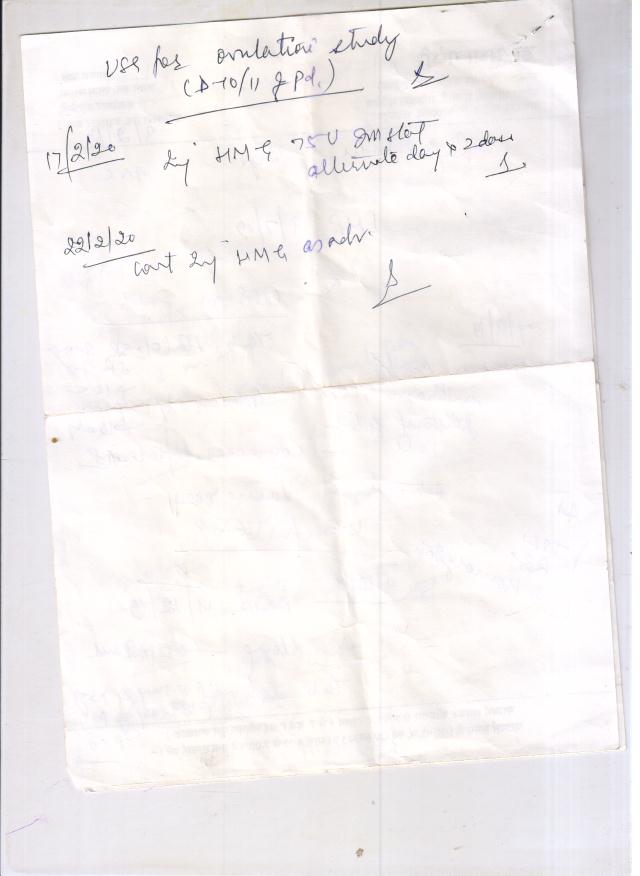 USG for ovulation study
(D-10/11 of pd.)
17/2/20 Inj HMG 75U IM stat
alternate day x 2 dose
22/2/20
cont Inj HMG as adv.